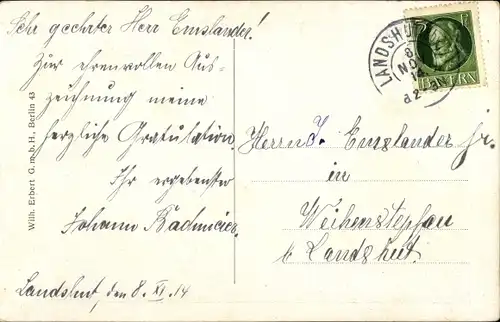 Sehr geehrter Herr Emslander!
Zur ehrenvollen Aus-
zeichnung meine
herzliche Gratulation.
Ihr ergebenster
Johann
Landshut, den 8. XI. 14
Wilh. Erbert G.m.b.H., Berlin 43
LANDSHUT
8
NOV
BAYERN
Herrn J. Emslander jr.
in
Weihenstephan
b. Landshut.